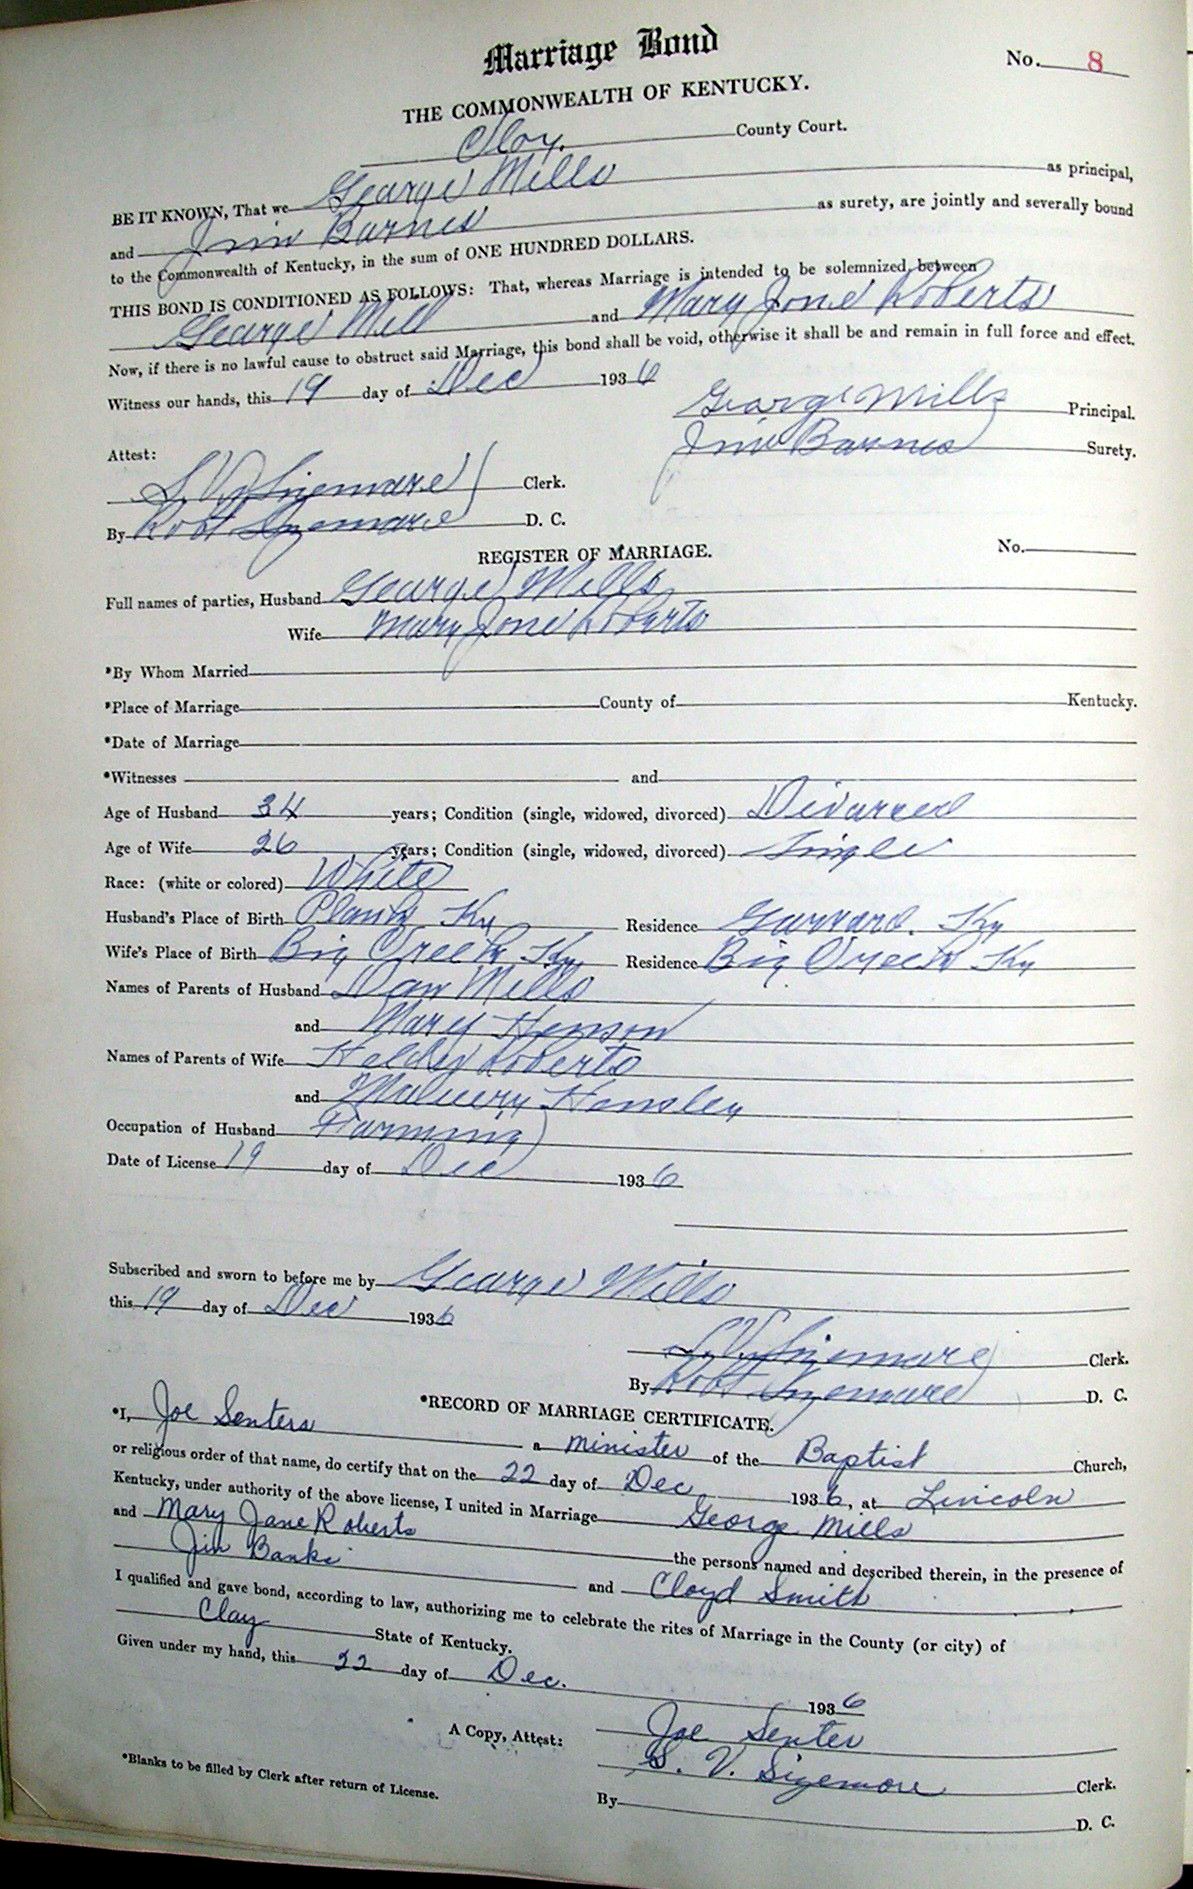 Marriage Bond
No. 8
THE COMMONWEALTH OF KENTUCKY.
Clay. County Court.
BE IT KNOWN, That we George Mills as principal,
and Jim Barnes as surety, are jointly and severally bound
to the Commonwealth of Kentucky, in the sum of ONE HUNDRED DOLLARS.
THIS BOND IS CONDITIONED AS FOLLOWS: That, whereas Marriage is intended to be solemnized, between
George Mill and Mary Jane Roberts
Now, if there is no lawful cause to obstruct said Marriage, this bond shall be void, otherwise it shall be and remain in full force and effect.
Witness our hands, this 19 day of Dec 1936
George Mills Principal.
Jim Barnes Surety.
Attest:
S. V. Sizemore Clerk.
By Robt Sizemore D. C.
REGISTER OF MARRIAGE. No.
Full names of parties, Husband George Mills
Wife Mary Jane Roberts
*By Whom Married
*Place of Marriage County of Kentucky.
*Date of Marriage
*Witnesses and
Age of Husband 34 years; Condition (single, widowed, divorced) Divorced
Age of Wife 26 years; Condition (single, widowed, divorced) Single
Race: (white or colored) White
Husband's Place of Birth Plank Ky Residence Garrard. Ky
Wife's Place of Birth Big Creek Ky. Residence Big Creek Ky
Names of Parents of Husband Dan Mills
and Mary Henson
Names of Parents of Wife Roberts
and Hensley
Occupation of Husband Farming
Date of License 19 day of Dec 1936
Subscribed and sworn to before me by George Mills
this 19 day of Dec 1936
S. V. Sizemore Clerk.
By Robt Sizemore D. C.
*RECORD OF MARRIAGE CERTIFICATE.
*I, Joe Senters a minister of the Baptist Church,
or religious order of that name, do certify that on the 22 day of Dec 1936, at Lincoln
Kentucky, under authority of the above license, I united in Marriage George Mills
and Mary Jane Roberts the persons named and described therein, in the presence of
Jim Banks and Cloyd Smith
I qualified and gave bond, according to law, authorizing me to celebrate the rites of Marriage in the County (or city) of
Clay State of Kentucky.
Given under my hand, this 22 day of Dec. 1936
Joe Senter
A Copy, Attest: S. V. Sizemore Clerk.
*Blanks to be filled by Clerk after return of License.
By D. C.